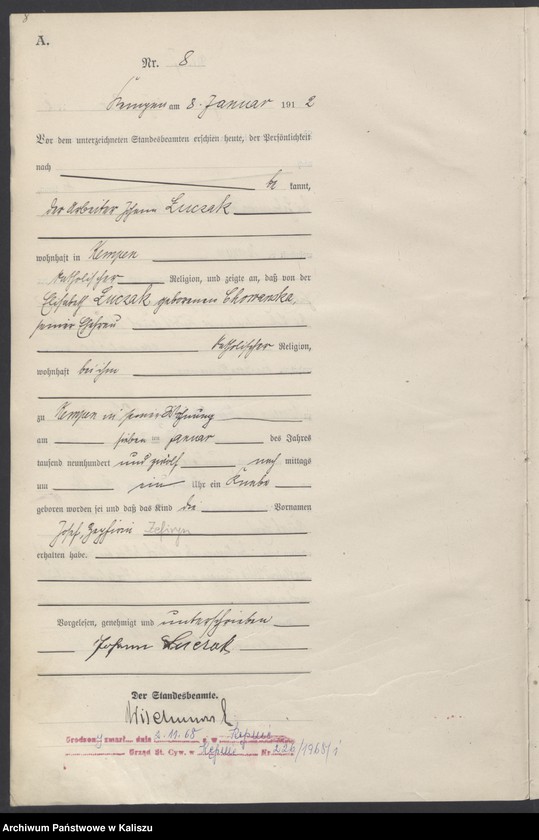 8
A.
Nr. 8
Kempen am 8. Januar 1912
Vor dem unterzeichneten Standesbeamten erschien heute, der Persönlichkeit
nach
be kannt,
der Arbeiter Johann Luczak
wohnhaft in Kempen
katholischer Religion, und zeigte an, daß von der
Elisabeth Luczak geborenen Chowanska,
seiner Ehefrau
katholischer Religion,
wohnhaft bei ihm
zu Kempen in seiner Wohnung
am sieben ten Januar des Jahres
tausend neunhundert und zwölf nach mittags
um ein Uhr ein Knabe
geboren worden sei und daß das Kind die Vornamen
Josef, Zephirin Zefiryn
erhalten habe.
Vorgelesen, genehmigt und unterschrieben
Johann Luczak
Der Standesbeamte.
zmarł dnia 2.11.68 r. w Kępnie
Urząd St. Cyw. w Kępnie Nr 226/1968/
Archiwum Państwowe w Kaliszu